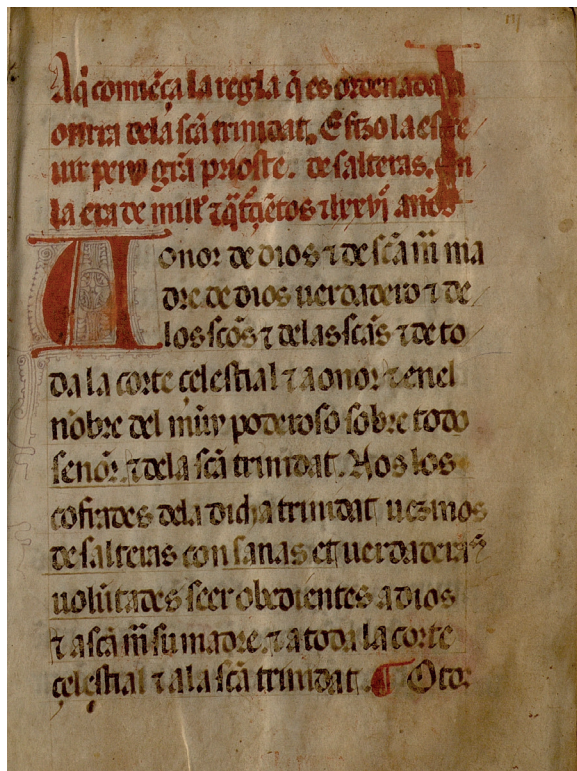 Aq̃ comiẽça la regla q̃ es ordenada a
onrra dela sc̃a trinidat. E fizo la escre
uir pero grã prioste. de salteras. En
la era de mill τ q̃trçiẽtos τ lxxvj años
A onor de dios τ de sc̃a m̃ ma
dre de dios uerdadero τ de
los sc̃os τ delas sc̃as τ de to
da la corte çelestial τ a onor τ enel
nõbre del muy poderoso sobre todo
señor. τ dela sc̃a trinidat. Nos los
cofrades dela dicha trinidat uezinos
de salteras con sanas et uerdaderas
uolũtades seer obedientes a dios
τ a sc̃a m̃ su madre. τ a toda la corte
çelestial τ ala sc̃a trinidat. ¶ Otor